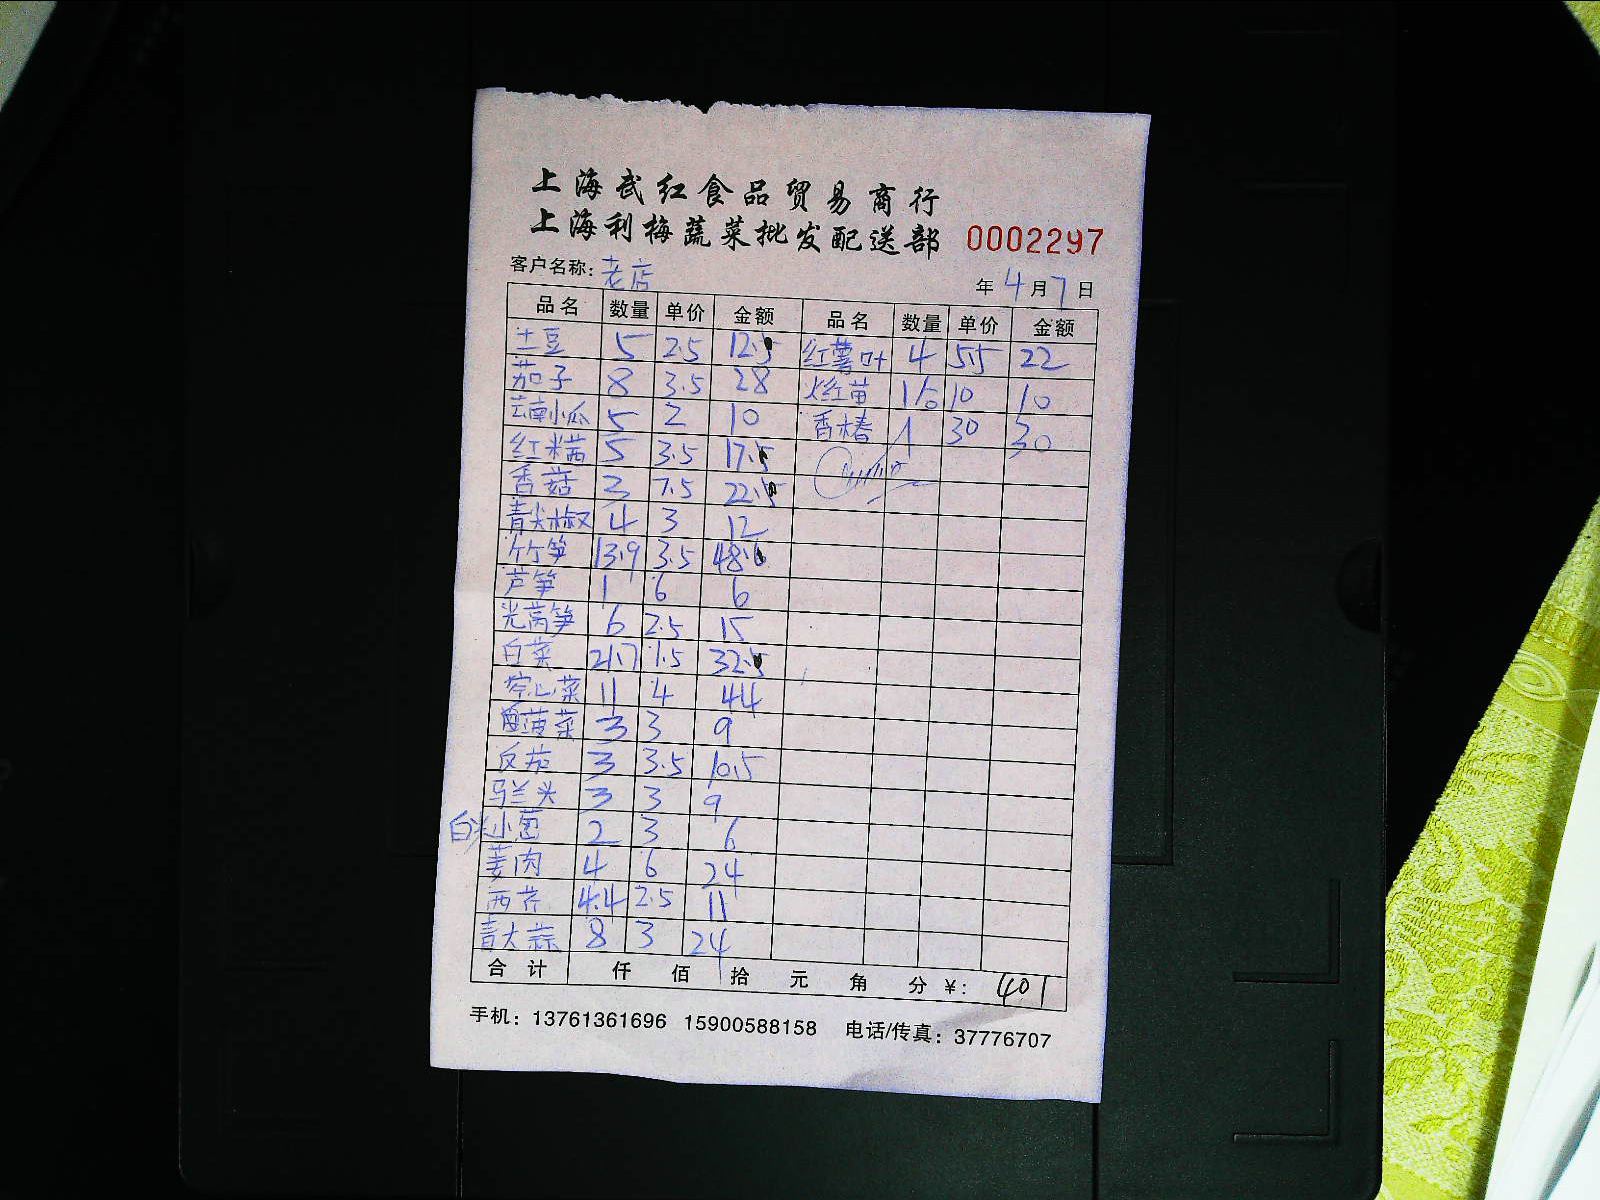 上海武红食品贸易商行
上海利梅蔬菜批发配送部 0002297
客户名称: 老店 年 4 月 7 日
品名 数量 单价 金额 品名 数量 单价 金额
土豆 5 2.5 12.5 红薯叶 4 5.5 22
茄子 8 3.5 28 红苗 10 10
云南小瓜 5 2 10 香椿 1 30 30
红米茜 5 3.5 17.5
香菇 3 7.5 22.5
青尖椒 4 3 12
竹笋 13.9 3.5 48.6
芦笋 1 6 6
光莴笋 6 2.5 15
白菜 21.7 1.5 32.5
空心菜 11 4 44
菠菜 3 3 9
反茄 3 3.5 10.5
马兰头 3 3 9
白米小葱 2 3 6
姜肉 4 6 24
西芹 4.4 2.5 11
青大蒜 8 3 24
合计 仟 佰 拾 元 角 分 ¥: 401
手机: 13761361696 15900588158 电话/传真: 37776707